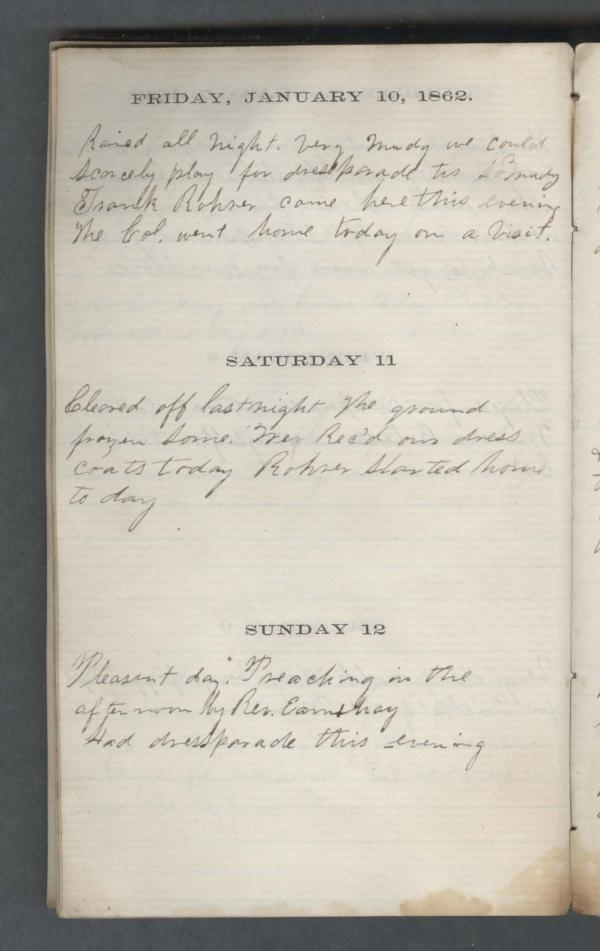 FRIDAY, JANUARY 10, 1862.
Rained all night. very mudy we could
scorcely play for dressparade tis so mudy
Frank Rohrer came here this evening
The Col. went home today on a visit.
SATURDAY 11
Cleared off last night The ground
frozen some. Wer Rec'd our dress
coats today Rohrer started home
to day
SUNDAY 12
Pleasent day. Preaching in the
afternoon by Rev.
Had dressparade this evening